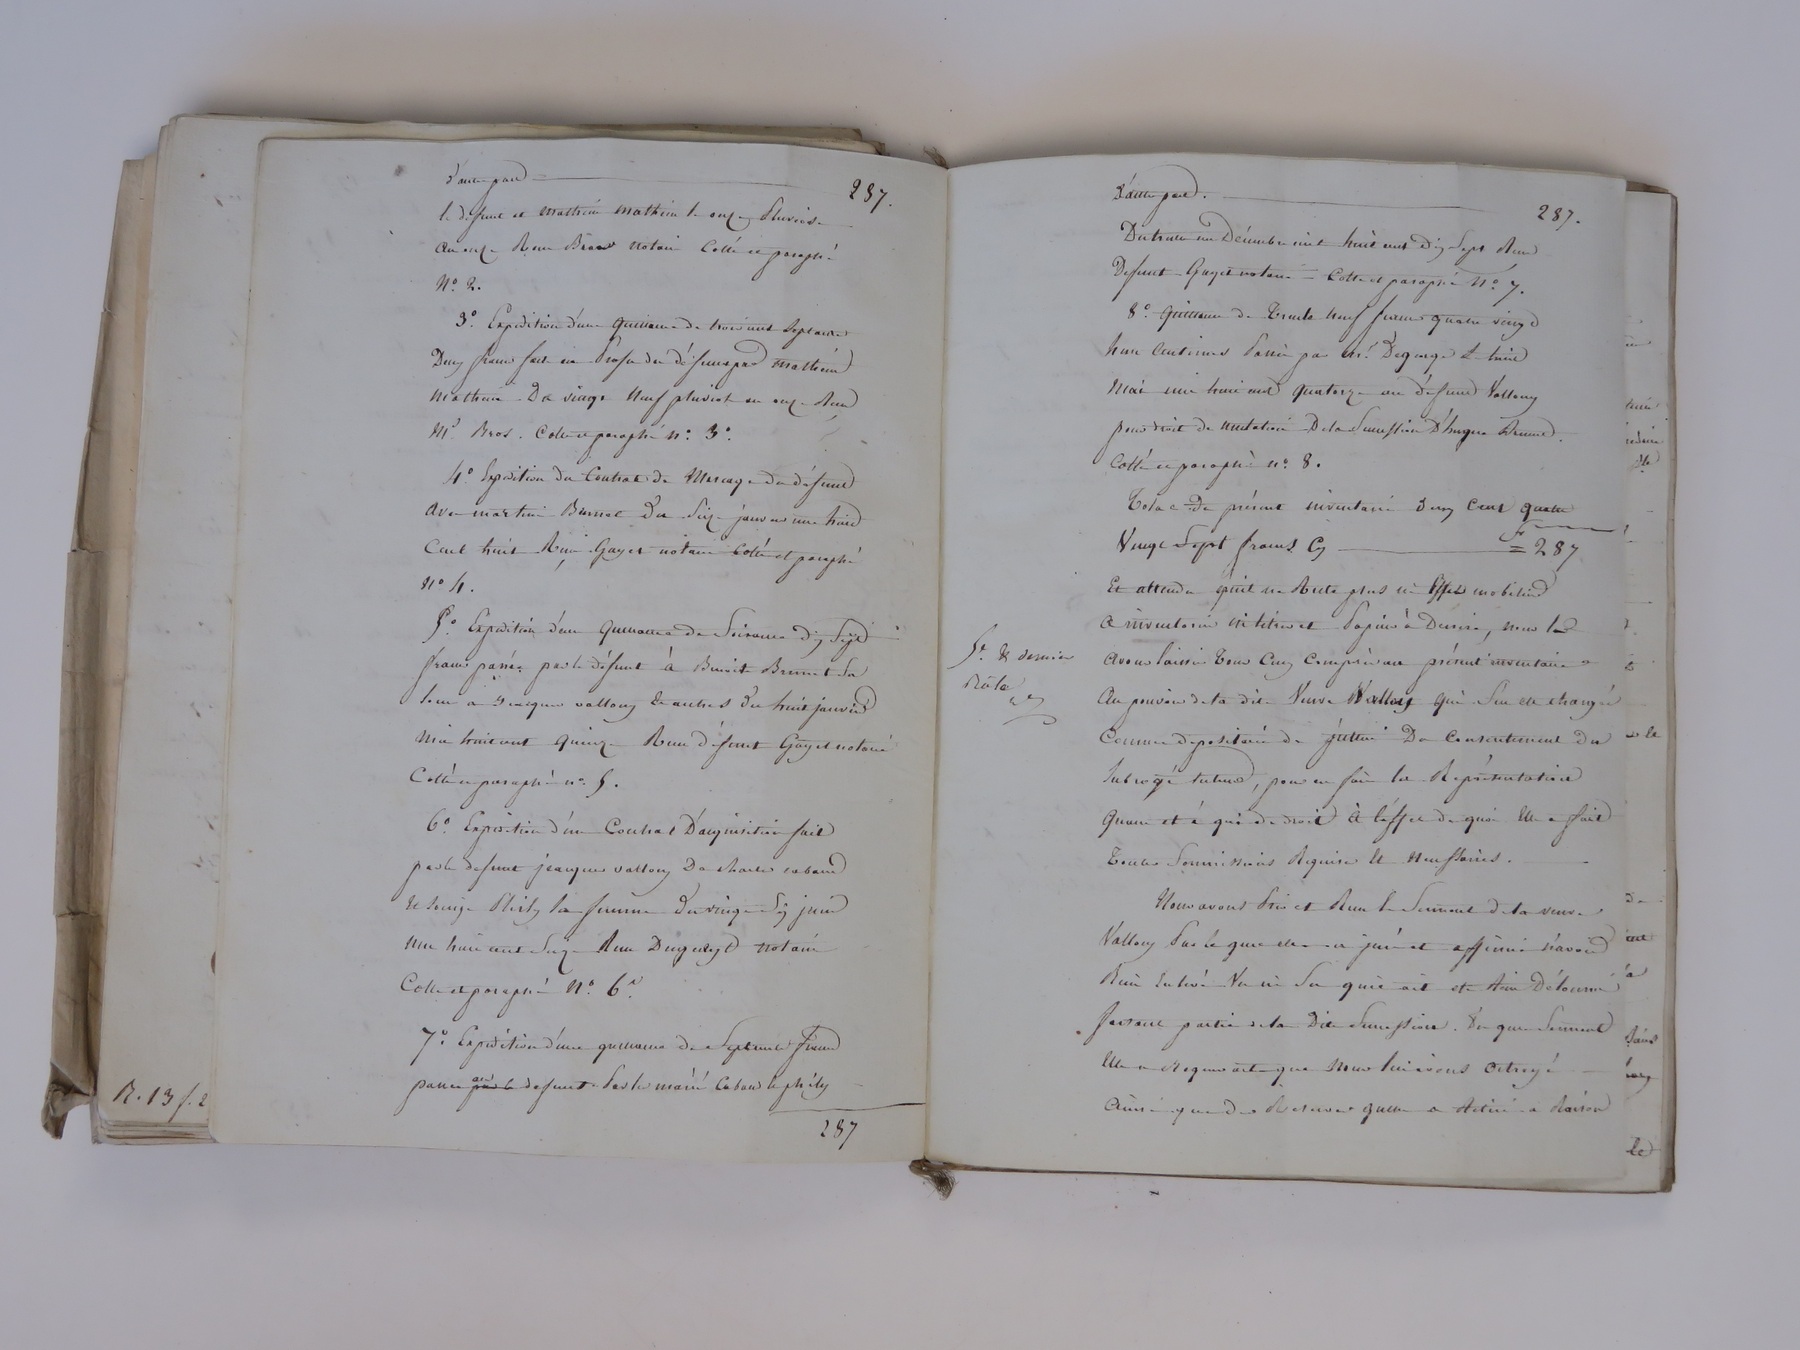 d'autre part 287.
le defunt et mathieu mathieu le onze Pluviose
an onze Reçu Bros notaire Cotté et paraphé
N° 2.
3° Expedition d'une quittance de trois cent Septante
Deux francs fait en du défunt par mathieu
mathieu Du vingt Neuf pluviose an onze Reçu
M.e Bros. Cotté et paraphé n° 3°.
4° Expedition du Contrat de Mariage du défunt
avec Brunel Du Seize janvier mil huit
Cent huit Reçu Gayet notaire Cotté et paraphé
N° 4.
5° Expedition d'une quittance de Soixante dix Sept
francs passée par le défunt à Benoit Brunet Sa
 à jeacques vallouy & autres Du huit janvier
mil huit cent quinze Reçu défunt Gayet notaire
Cotté et paraphé n° 5.
6° Expedition d'un Contrat D'acquisition fait
par le defunt jeacques vallouy De charles cabaud
et Sa femme Du vingt Six juin
mil huit cent Seize Reçu Dugueyt notaire
Cotté et paraphé N° 6°.
7° Expédition d'une quittance de Septante francs
passée au defunt Par le marié Cabaud &
287
R. 13 f. 2
d'autre part. 287.
Du trente un Décembre mil huit cent Dix Sept Reçu
Defunt Gayet notaire Cotté et paraphé N° 7.
8° quittance de Trente Neuf francs quatre vingt
huit Centimes Passée par Mr. le huit
Mai mil huit cent quatorze au défunt Vallouy
pour droit de mutation De la Succession D'hugues Brunet.
Cotté et paraphé n° 8.
Total Du présent inventaire deux Cent quatre
Vingt Sept francs Cy F = 287
Et attendu qu'il ne Reste plus ni Effets mobiliers
a inventorier ni titres et Papiers à Decrire, nous les
5e & dernier
Rôle
avons laissé Tous Ceux Compris au présent inventaire
au pouvoir de la dite Veuve Vallouy qui S'en est chargée
Comme depositaire de justice Du Consentement du
Subrogé tuteur, pour en faire la Représentation
quand et à qui de droit à l'effet de quoi Elle a fait
Toutes Soumissions Requises Et Necessaires.
Nous avons Pris et Reçu le Serment de la veuve
Vallouy Par le quel elle a juré et affirmé n'avoir
Rien Enlevé Vu ni Su qu'il ait été Rien Détourné
faisant partie de la Dite Succession. Du quel Serment
Elle a Requis acte que Nous lui avons octroyé
ainsi que des Reserves qu'elle a Réitéré a Raison